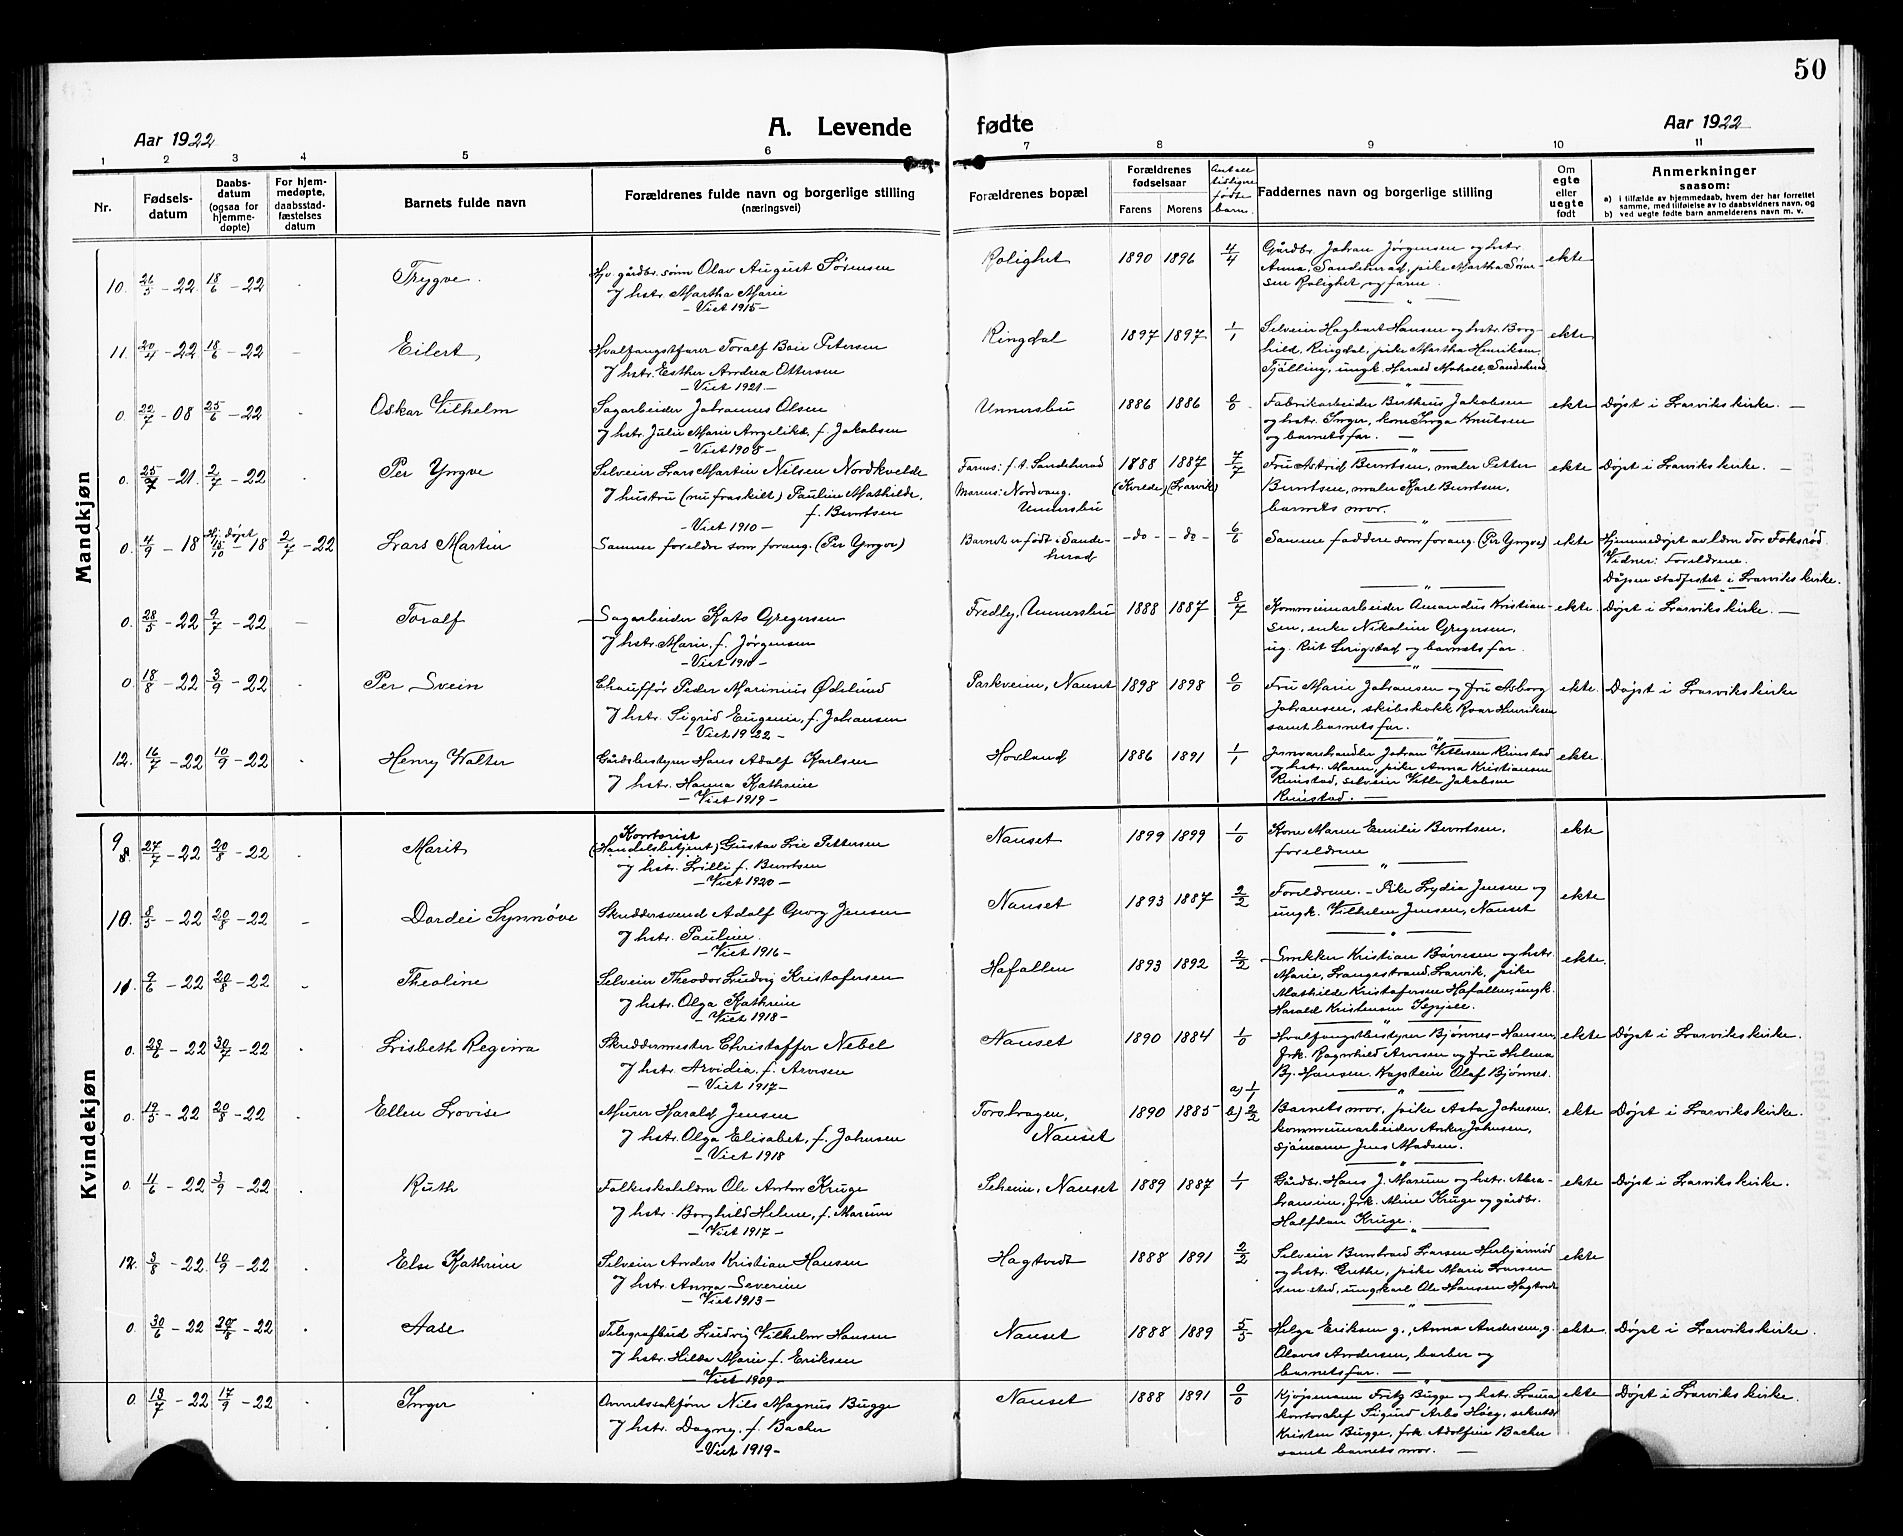 50
Aar 1922
A. Levende fødte
Aar 1922
1 2 3 4 5 6 7 8 9 10 11
Nr.
Fødsels-
datum
Daabs-
datum
(ogsaa for
hjemme-
døpte)
For hjem-
medøpte,
daabsstad-
fæstelses
datum
Barnets fulde navn
Forældrenes fulde navn og borgerlige stilling
(næringsvei)
Forældrenes bopæl
Forældrenes
fødselsaar
Farens Morens
Antall
tidligere
fødte
barn.
Faddernes navn og borgerlige stilling
Om
egte
eller
uegte
født
Anmerkninger
saasom:
a) i tilfælde av hjemmedaab, hvem der har forrettet
samme, med tilføielse av to daabsvidners navn, og
b) ved uegte fødte barn anmelderens navn m. v.
Mandkjøn
10. 26/5 - 22. 18/6 - 22 Trygve.
Hv. gårdbr. sønn Olav August Sørensen
og hstr. Martha Marie
- Viet 1915 -
Rolighet 1890 1896 4/4
Gårdbr. Johan Jørgensen og hstr.
Anna, Sandeherad, pike Martha Søren-
sen Rolighet og faren.
ekte
11. 20/4 - 22 18/6 - 22 - Eilert
Hvalfangstfarer Toralf Boie Petersen
og hstr. Esther Andrea Ottersen
- Viet 1921 -
Ringdal 1897 1897 1/1
Selveier Hagbart Hansen og hstr. Borg-
hild, Ringdal, pike Martha Henriksen,
Tjølling, ungk. Harald Moholt, Sandeherad
ekte
0. 22/7 - 08 25/6 - 22 Oskar Vilhelm
Sagarbeider Johannes Olsen
og hstr. Julie Marie Angelika, f. Jakobsen
- Viet 1908 -
Unnersbu 1886 1886 0/0
Fabrikarbeider Bertheus Jakobsen
og hstr. Inger, kone Inga Knutsen
og barnets far. -
ekte Døpt i Larviks kirke. -
0. 25/7 - 21. 2/7 - 22 Per Yngve
Selveier Lars Martin Nilsen Nordkvelde
og hustru (nu fraskilt) Pauline Mathilde,
f. Berntsen
- Viet 1910 -
Farens: f. t. Sandeherad
Morens: Nordvang.
Unnersbu
1888 1887 7/7
(Kvelde) (Larvik)
Fru Astrid Berntsen, maler Petter
Berntsen, maler Karl Berntsen,
barnets mor. -
ekte Døpt i Larviks kirke. -
0. 4/9 - 18 Hj. døpt 13/10 - 18 2/7 - 22 Lars Martin
Samme foreldre som forang. (Per Yngve)
Barnet er født i Sande-
herad
- do - - do - 6/6
Samme faddere som forang. (Per Yngve)
ekte
Hjemmedøpt av lærer Tor Foksrød.
Vidner: Foreldrene.
Dåpen stadfestet i Larviks kirke.
0. 28/5 - 22 9/7 - 22 - Toralf
Sagarbeider Kato Gregersen
og hstr. Marie, f. Jørgensen
- Viet 1911 -
Fredly, Unnersbu 1888 1887 8/7
Kommunearbeider Amandus Kristian-
sen, enke Nikoline Gregersen,
ug. Rut Lingstad og barnets far.
ekte. Døpt i Larviks kirke. -
0. 18/8 - 22 3/9 - 22 Per Svein
Chauffør Peder Marinius Ødelund
og hstr. Sigrid Eugenie, f. Johansen
- Viet 1922 -
Parkveien, Nanset 1898 1898 0/0
Fru Marie Johansen og fru Asborg
Johansen, skibskokk Roar Henriksen
samt barnets far.
ekte. Døpt i Larviks kirke
12. 16/7 - 22 10/9 - 22 Henry Walter
Gårdsbestyrer Hans Adolf Karlsen
og hstr. Hanna Kathrine
- Viet 1919 -
Hovland 1886 1891 1/1
Jernvarehandler Johan Vetlesen Rimstad
og hstr. Maren, pike Anna Kristiansen
Rimstad, selveier Vetle Jakobsen
Rimstad. -
ekte.
Kvindekjøn
9 8. 27/7 - 22 20/8 - 22 Marit
Kontorist
(Handelsbetjent) Gustav Lie Pettersen
og hstr. Lilli f. Berntsen
- Viet 1920 -
Nanset 1899 1899 1/0
Kone Maren Emilie Berntsen,
foreldrene
ekte
10. 8/5 - 22 20/8 - 22 - Dordei Synnøve
Skreddersvend Adolf Georg Jensen
og hstr. Pauline.
- Viet 1916 -
Nanset 1893 1887 2/2
Foreldrene. - Pike Lydia Jensen og
ungk. Vilhelm Jensen, Nanset
ekte
11. 9/6 - 22 20/8 - 22 - Theoline
Selveier Theodor Ludvig Kristofersen
og hstr. Olga Kathrine
- Viet 1918 -
Hafallen 1893 1892 2/2
Snekker Kristian Børresen og hstr.
Marie, Langestrand, Larvik, pike
Mathilde Kristofersen Hafallen, ungk.
Harald Kristensen
ekte.
0. 28/6 - 22 30/7 - 22 Lisbeth Regina
Skreddermester Christoffer Nebel
og hstr. Arvidia, f. Arvesen
- Viet 1917 -
Nanset 1890 1884 1/0
Hvalfangstbestyrer Bjønnes-Hansen,
frk. Ragnhild Arvesen og fru Helena
Bj. Hansen. Kaptein Olaf Bjønnes.
ekte Døpt i Larviks kirke.
0. 19/5 - 22 20/8 - 22 Ellen Lovise
Murer Harald Jensen
og hstr. Olga Elisabet, f. Johnsen
- Viet 1918
Torstvogen,
Nanset
1890 1885 a) 1/1
b) 2/2
Barnets mor, pike Asta Johnsen,
kommunearbeider Anker Johnsen,
sjømann Jens Madsen.
ekte Døpt i Larviks kirke.
0. 11/6 - 22 3/9 - 22 Ruth
Folkeskolelærer Ole Anton Kruge
og hstr. Borghild Helene, f. Marum
- Viet 1917 -
Solheim, Nanset 1889 1887 1/1
Gårdbr. Hans J. Marum og hstr. Abra-
hamine, frk. Aline Kruge og gårdbr.
Halfdan Kruge.
ekte Døpt i Larviks kirke.
12. 3/8 - 22 10/9 - 22 Else Kathrine
Selveier Anders Kristian Hansen
og hstr. Anna Severine
- Viet 1913 -
Hagtvedt 1888 1891 2/2
Selveier Berntvard Larsen Herbjørnrød
og hstr. Grethe, pike Marie Larsen
smsteds, ungkarl Ole Hansen Hagtvedt
ekte
0. 30/6 - 22 20/8 - 22 Aase
Telegrafbud Ludvig Vilhelm Hansen
og hstr. Hilda Marie f. Eriksen
- Viet 1909 -
Nanset 1888 1889 5/5
Helga Eriksen g., Anna Andersen, g.
Olaves Andersen, barber og
barnets far. -
ekte. Døpt i Larviks kirke.
0. 13/7 - 22 17/9 - 22 Inger
Overrettssakfører Nils Magnus Bugge
og hstr. Dagny, f. Bacher
- Viet 1919 -
Nanset 1888 1891 0/0
Kjøpmann Fritz Bugge og hstr. Laura
kontorchef Sigurd Arbo Høeg, sekretær
Kristen Bugge, frk. Adolfine Bacher
samt barnets mor. -
ekte Døpt i Larviks kirke.